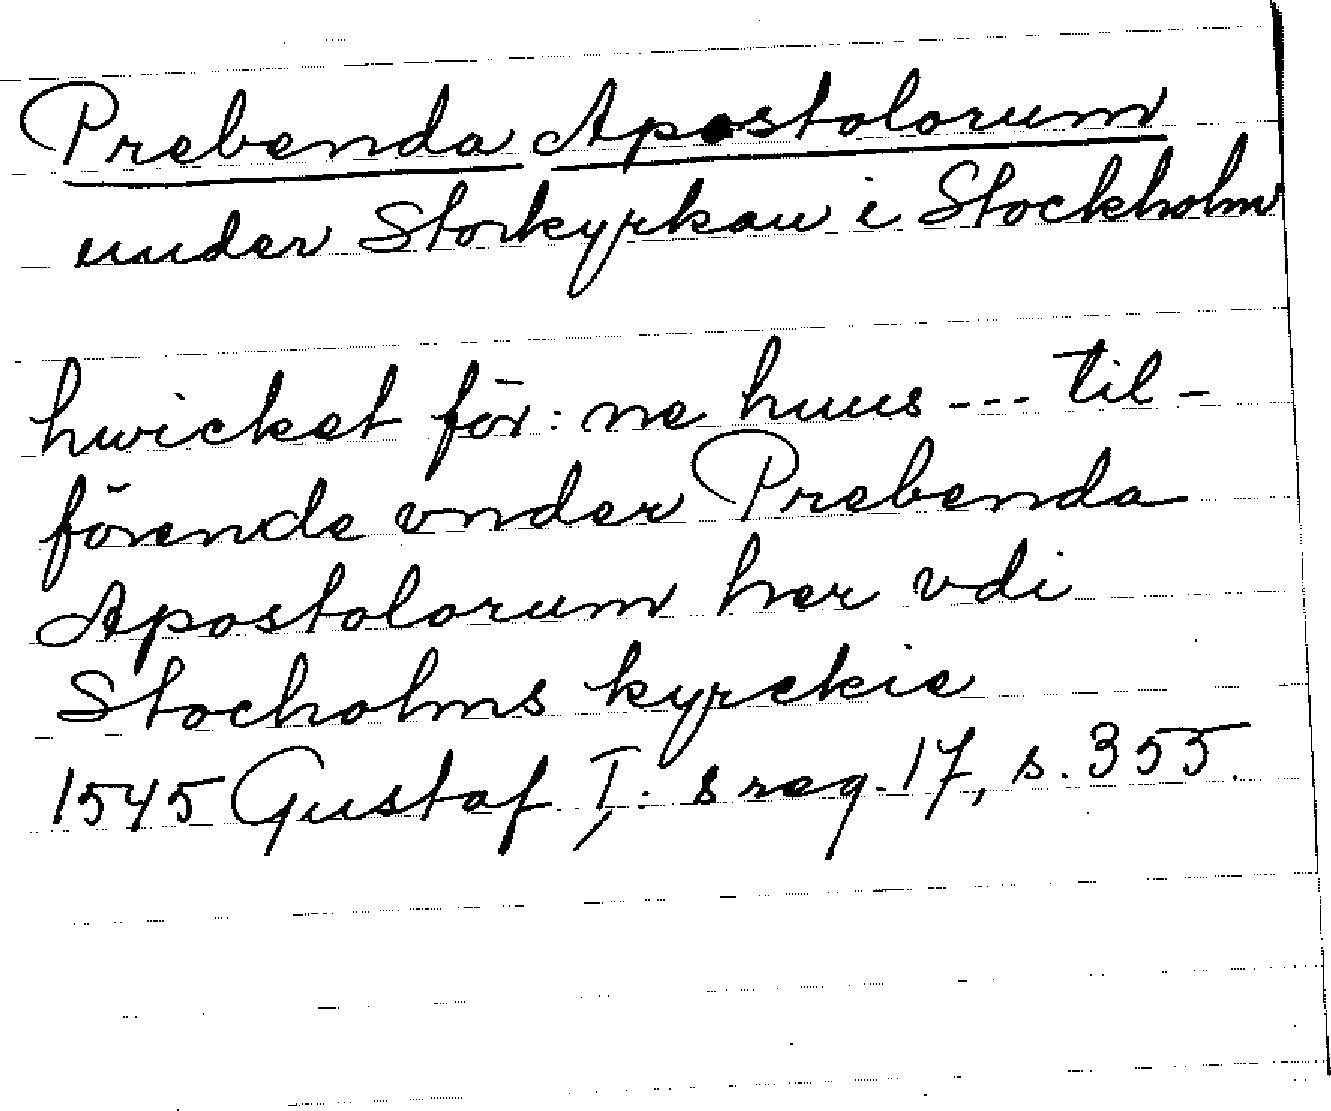 Prebenda Apostolorum
under Storkyrkan i Stockholm
hwicket för: ne huus --- til-
förende vnder Prebenda
Apostolorum her vdi
Stocholms kyrckie
1545 Gustaf I: s reg. 17, s. 355.